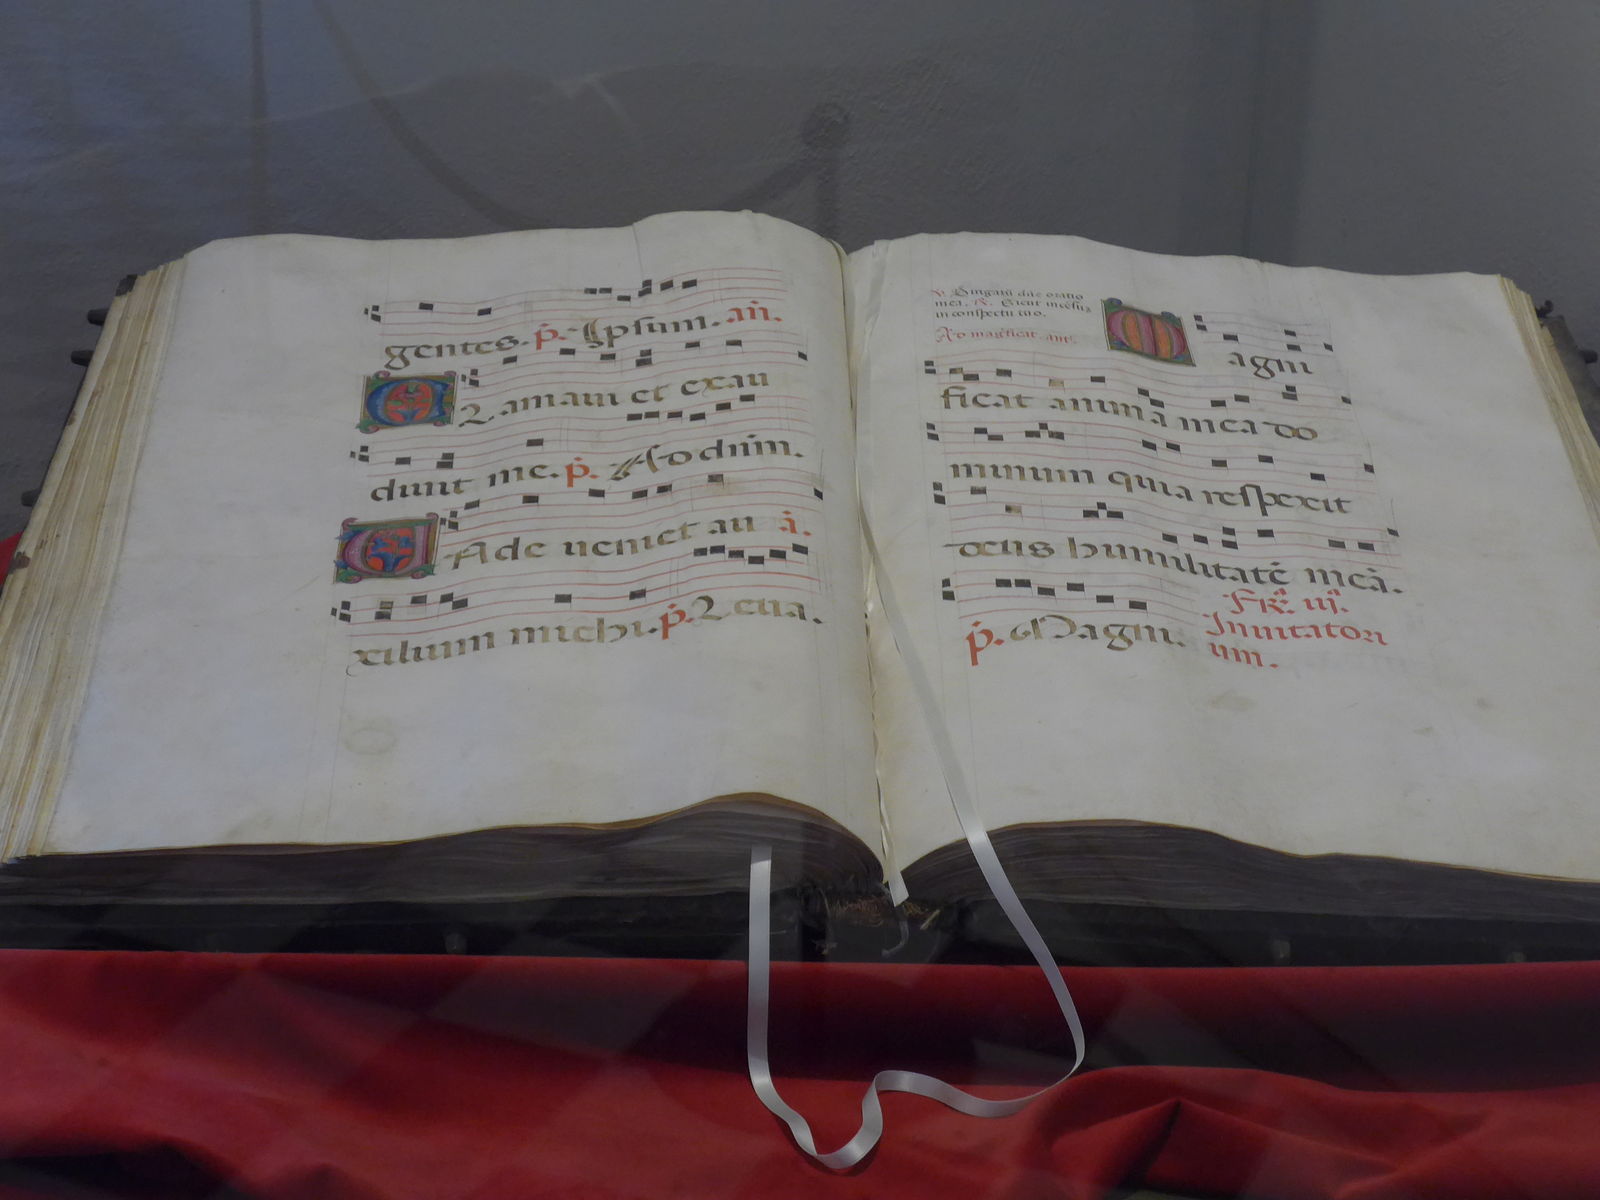 gentes. p̄. Ipsum. añ.
Clamaui et exau
dunt me. p̄. Ad dn̄m.
Unde ueniet au ā.
xilium michi. p̄. Leua.
V. Dirigatur dn̄e oratio
mea. R. Sicut incēsuȝ
in conspectu tuo.
Ad mag̃ficat. ant.
Magni
ficat anima mea do
minum quia respexit
deus humilitatē meā.
p̄. Magni. Fr̄a iij.
Inuitatori
um.